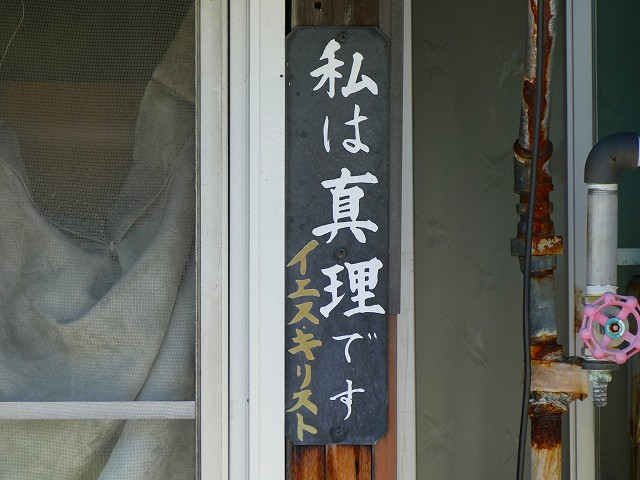 私は真理です
イエスキリスト